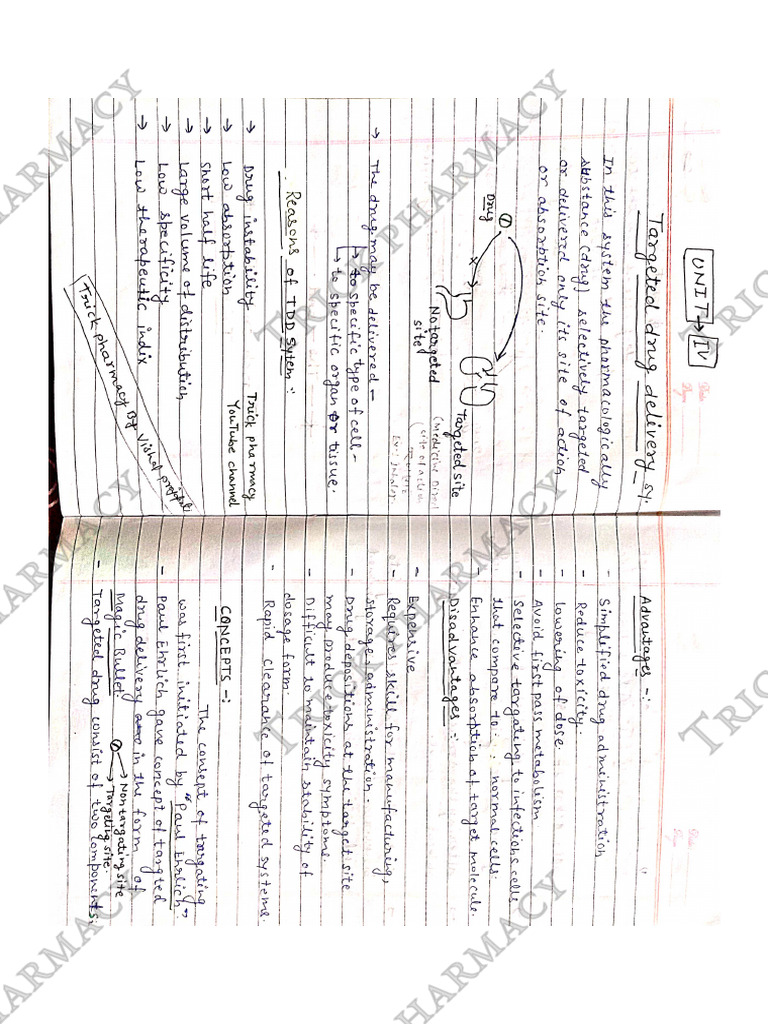 UNIT → IV
Targeted drug delivery sy.
In this system the pharmacologically
substance (drug) selectively targeted
or delivered only its site of action
or absorption site.
Drug
No targeted
site
Targeted site
site of action
→ The drug may be delivered -
→ to specific type of cell -
→ to specific organ or tissue.
Reasons of TDD Sytem :-
→ Drug instability
→ Low absorption
→ Short half life
→ Large volume of distribution
→ Low specificity
→ Low therapeutic index
Trick pharmacy
YouTube channel
Trick pharmacy By Vishal
Advantages -:
- Simplified drug administration
- Reduce toxicity.
- Lowering of dose.
- Avoid first pass metabolism
- Selective targating to infections cells
that compare to normal cells.
- Enhance absorption of target molecule.
Disadvantages :-
- Expensive
- Requires skill for manufacturing,
storage, administration.
- Drug depositions at the target site
may produce toxicity symptoms.
- Difficult to maintain stability of
dosage form.
- Rapid clearance of targeted systems.
CONCEPTS -:
The consept of targating
was first initiated by "Paul Ehrlich"
- Paul Ehrlich gave concept of targted
drug delivery in the form of
Magic Bullet.
Non targating site
Targeting site.
- Targeted drug consist of two components:
TRICK PHARMACY